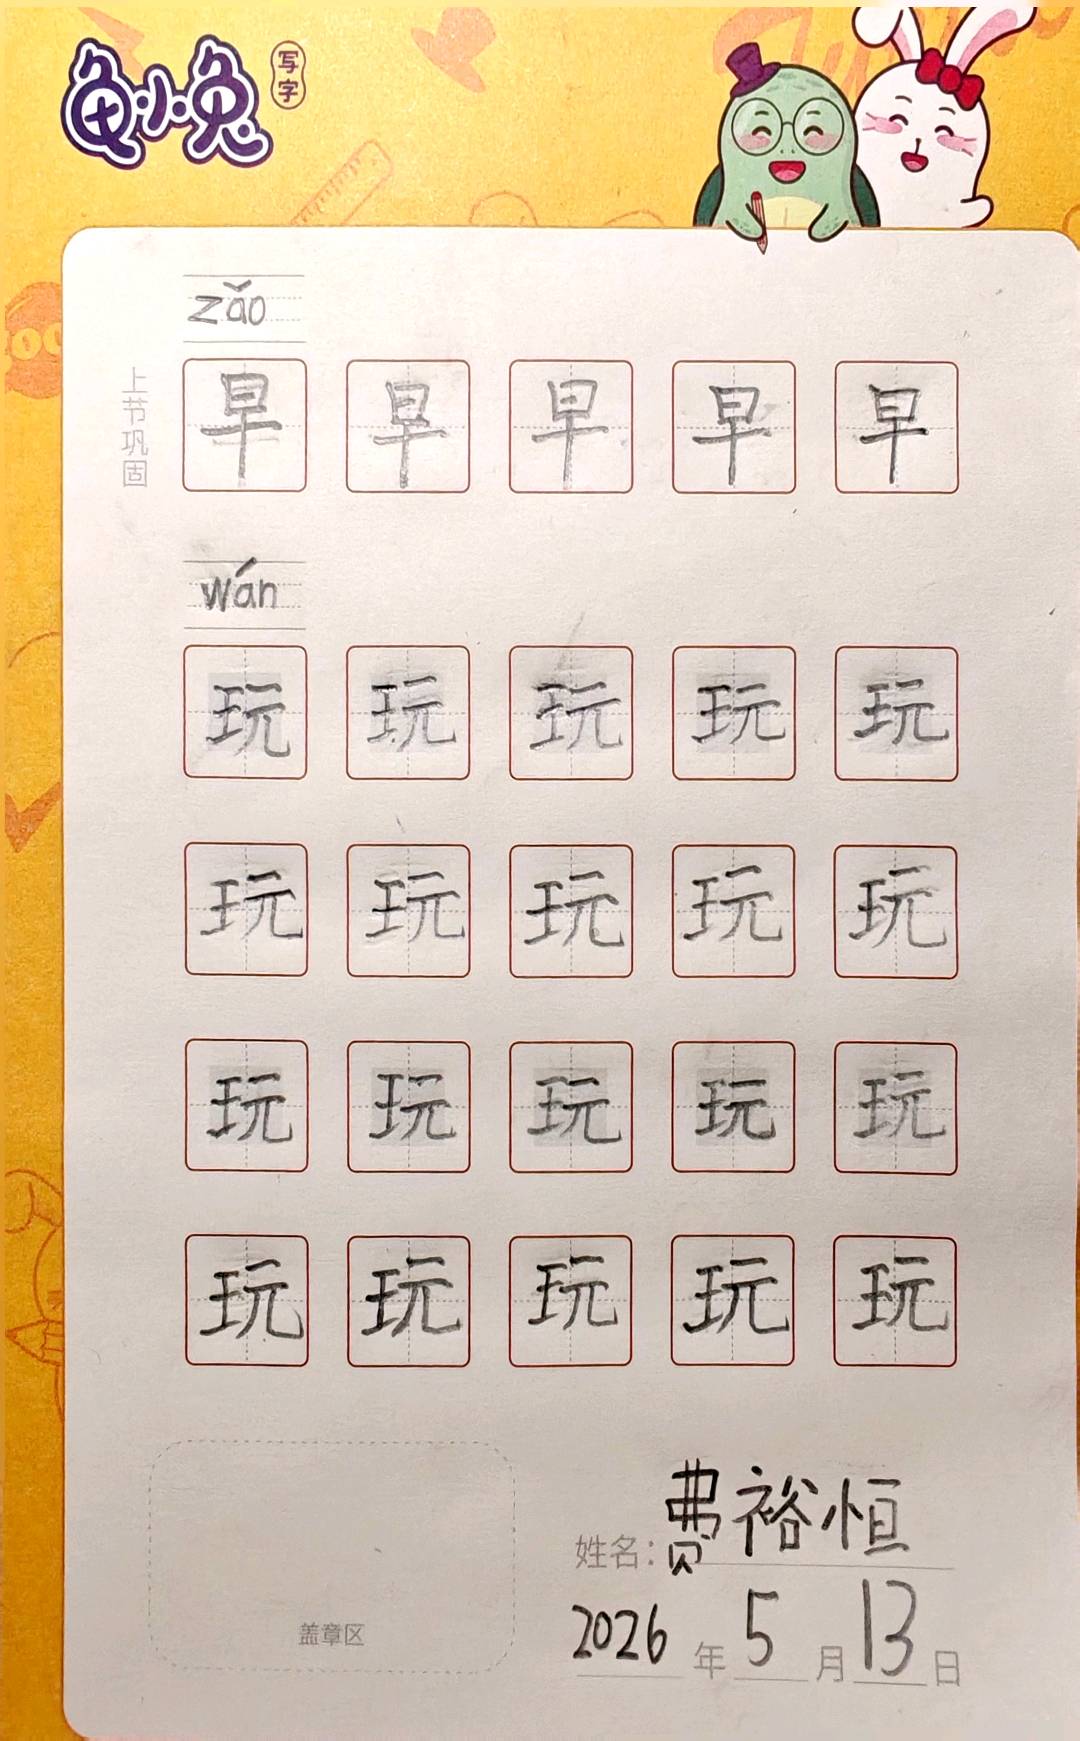 龟小兔 写字
zǎo
上节巩固
早 早 早 早 早
wán
玩 玩 玩 玩 玩
玩 玩 玩 玩 玩
玩 玩 玩 玩 玩
玩 玩 玩 玩 玩
姓名：费裕恒
盖章区
2026年5月13日